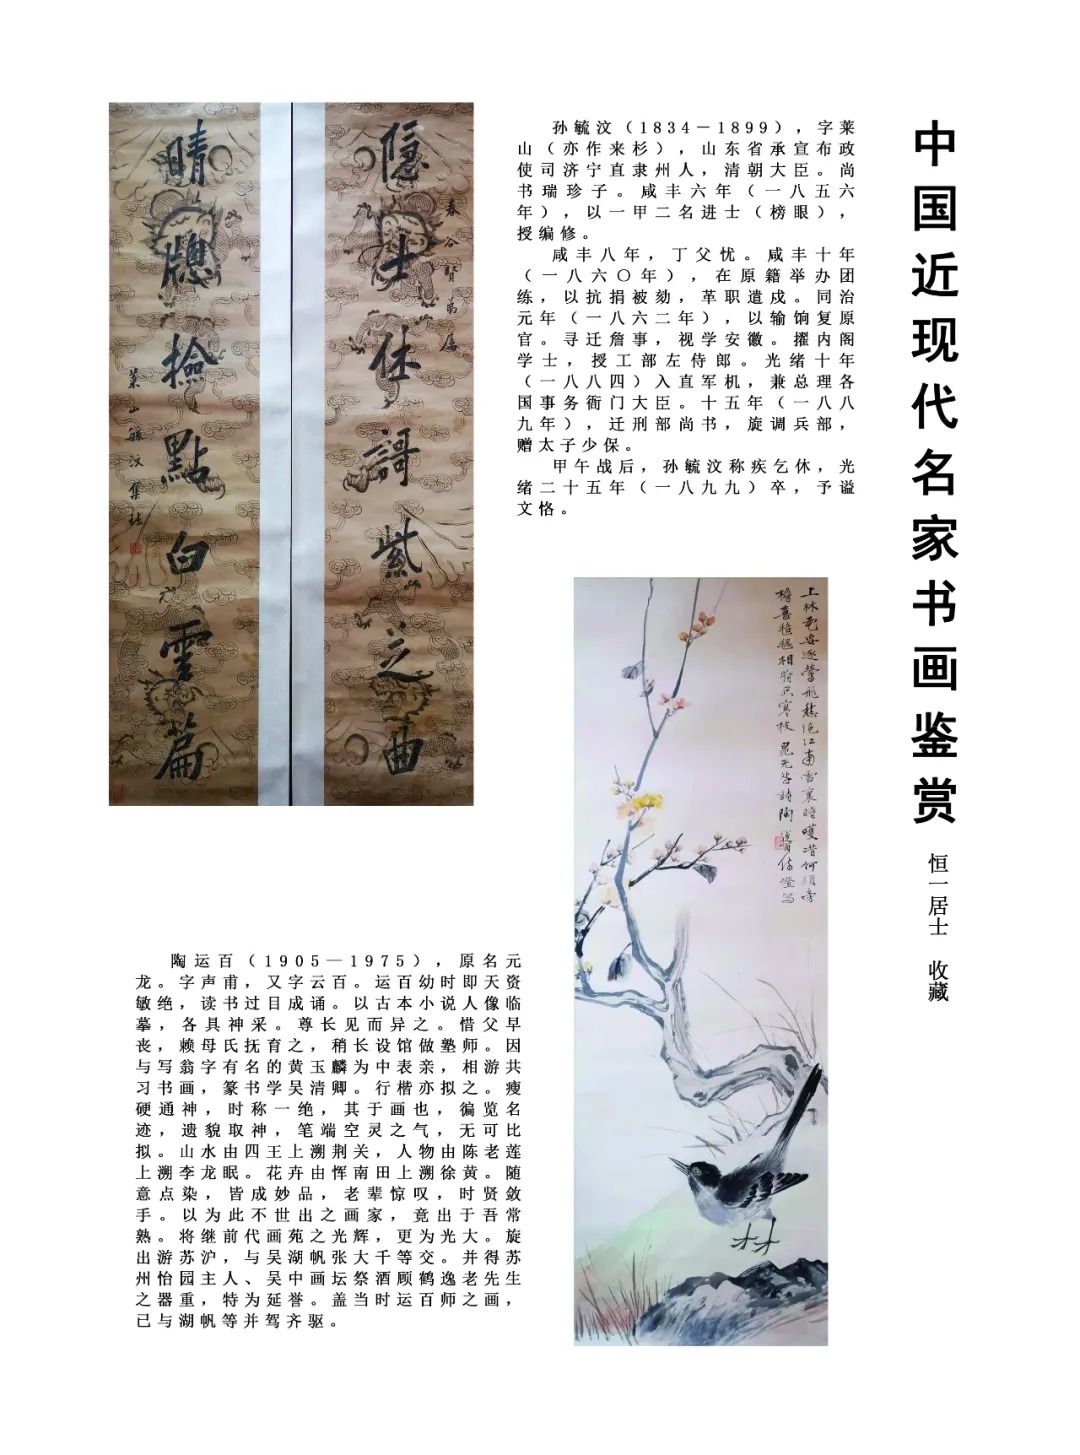 中国近现代名家书画鉴赏
恒一居士 收藏
孙毓汶（1834－1899），字莱
山（亦作来杉），山东省承宣布政
使司济宁直隶州人，清朝大臣。尚
书瑞珍子。咸丰六年（一八五六
年），以一甲二名进士（榜眼），
授编修。
咸丰八年，丁父忧。咸丰十年
（一八六〇年），在原籍举办团
练，以抗捐被劾，革职遣戍。同治
元年（一八六二年），以输饷复原
官。寻迁詹事，视学安徽。擢内阁
学士，授工部左侍郎。光绪十年
（一八八四）入直军机，兼总理各
国事务衙门大臣。十五年（一八八
九年），迁刑部尚书，旋调兵部，
赠太子少保。
甲午战后，孙毓汶称疾乞休，光
绪二十五年（一八九九）卒，予谥
文恪。
春谷贤弟属
隐士休謌紫之曲
晴牕撿點白雲篇
莱山毓汶集
上林
江南雪裏
相
寒枝
詩陶
陶运百（1905－1975），原名元
龙。字声甫，又字云百。运百幼时即天资
敏绝，读书过目成诵。以古本小说人像临
摹，各具神采。尊长见而异之。惜父早
丧，赖母氏抚育之，稍长设馆做塾师。因
与写翁字有名的黄玉麟为中表亲，相游共
习书画，篆书学吴清卿。行楷亦拟之。瘦
硬通神，时称一绝，其于画也，徧览名
迹，遗貌取神，笔端空灵之气，无可比
拟。山水由四王上溯荆关，人物由陈老莲
上溯李龙眠。花卉由恽南田上溯徐黄。随
意点染，皆成妙品，老辈惊叹，时贤敛
手。以为此不世出之画家，竟出于吾常
熟。将继前代画苑之光辉，更为光大。旋
出游苏沪，与吴湖帆张大千等交。并得苏
州怡园主人、吴中画坛祭酒顾鹤逸老先生
之器重，特为延誉。盖当时运百师之画，
已与湖帆等并驾齐驱。